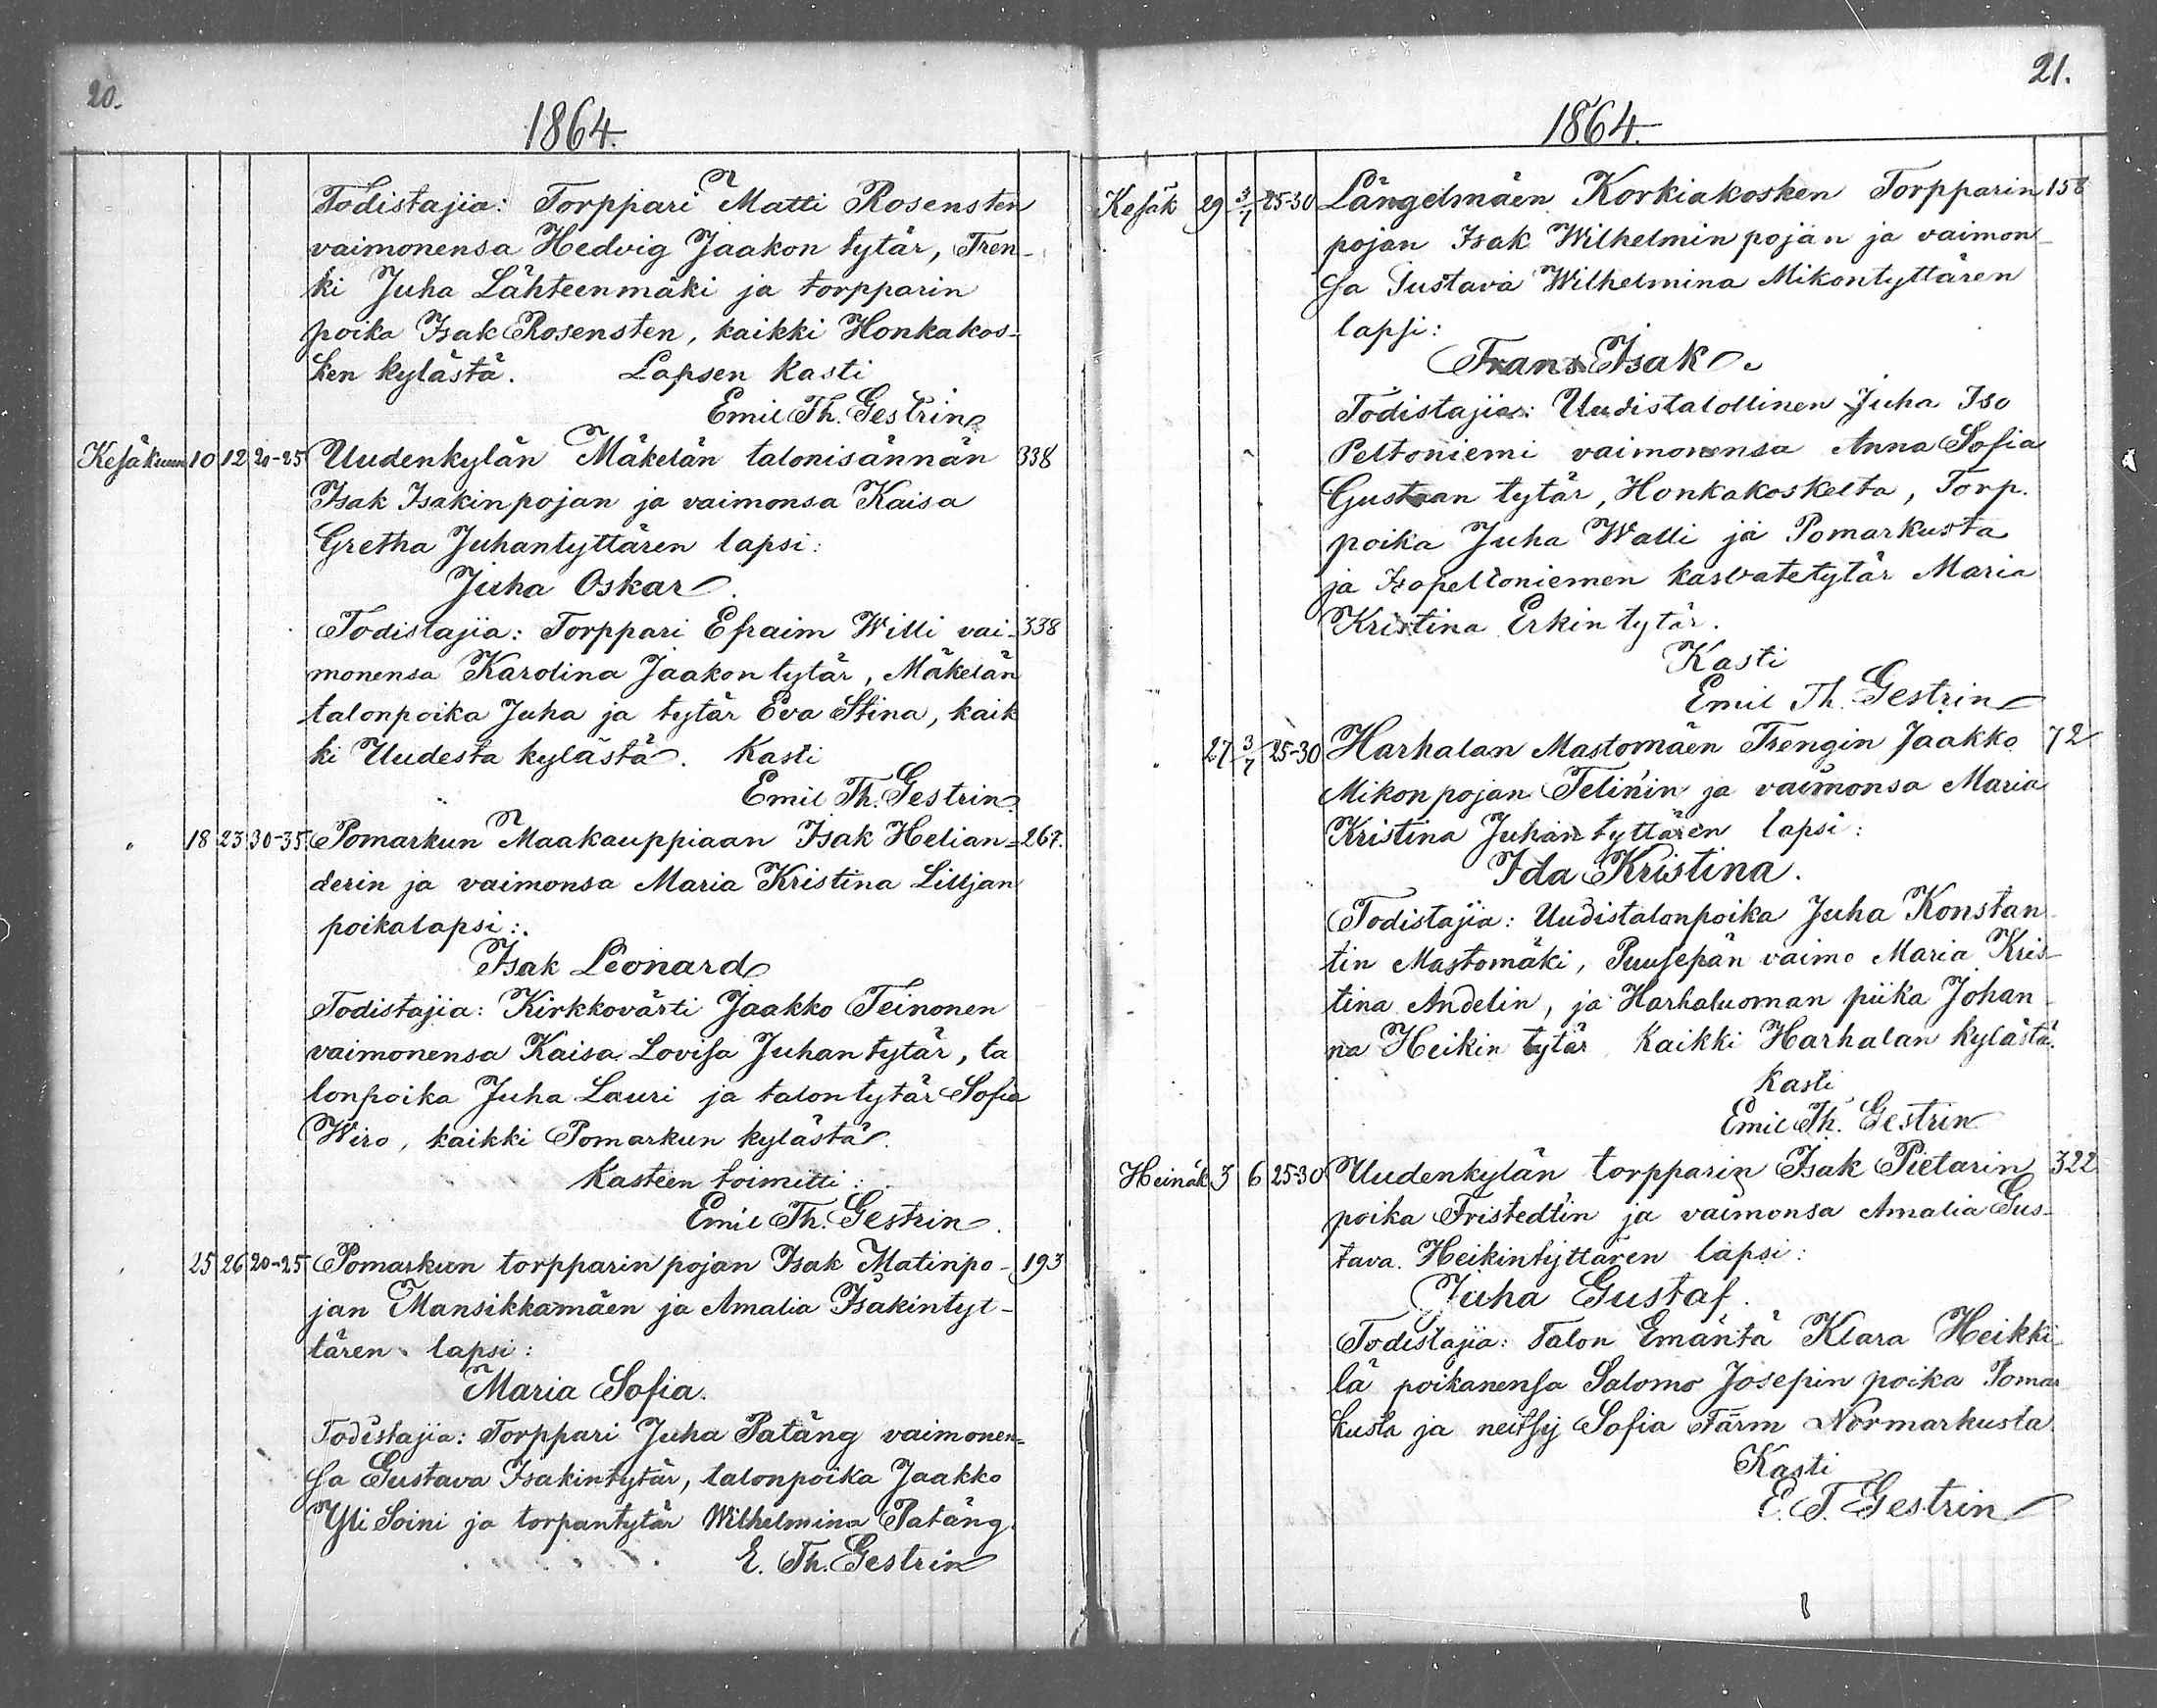 20.
1864.
Todistajia: Torppari Matti Rosensten
vaimonensa Hedvig Jaakon tytär, Tren-
ki Juha Lähteenmäki ja torpparin
poika Isak Rosensten, kaikki Honkakos-
ken kylästä. Lapsen kasti
Emil Th. Gestrin
Kesäkuun 10 12 20-25 Uudenkylän Mäkelän talonisännän 338
Isak Isakinpojan ja vaimonsa Kaisa
Gretha Juhantyttären lapsi:
Juha Oskar.
Todistajia: Torppari Efraim Willi vai- 338
monensa Karolina Jaakon tytär, Mäkelän
talonpoika Juha ja tytär Eva Stina, kaik
ki Uudesta kylästä. Kasti
Emil Th. Gestrin
" 18 23 30-35 Pomarkun Maakauppiaan Isak Helian- 267.
derin ja vaimonsa Maria Kristina Lilljan
poikalapsi:
Isak Leonard
Todistajia: Kirkkovärti Jaakko Teinonen
vaimonensa Kaisa Lovisa Juhantytär, ta
lonpoika Juha Lauri ja talontytär Sofia
Wiro, kaikki Pomarkun kylästä.
Kasteen toimitti:
Emil Th. Gestrin.
25 26 20-25 Pomarkun torpparin pojan Isak Matinpo- 193
jan Mansikkamäen ja Amalia Isakintyt-
tären lapsi:
Maria Sofia.
Todistajia: Torppari Juha Patäng vaimonen-
sa Gustava Isakintytär, talonpoika Jaakko
Yli Soini ja torpantytär Wilhelmina Patäng.
E. Th. Gestrin
21.
1864.
Kesäk 29 3/7 25-30 Längelmäen Korkiakosken Torpparin 158
pojan Isak Wilhelmin pojan ja vaimon-
sa Gustava Wilhelmina Mikontyttären
lapsi:
Frans Isak.
Todistajia: Uudistalollinen Juha Iso
Peltoniemi vaimonensa Anna Sofia
Gustaan tytär, Honkakoskelta, Torp.
poika Juha Walli ja Pomarkusta
ja Isopeltoniemen kasvatetytär Maria
Kristina Erkin tytär.
Kasti
Emil Th. Gestrin
" 27 3/7 25-30 Harhalan Mastomäen Trengin Jaakko 72
Mikonpojan Felinin ja vaimonsa Maria
Kristina Juhan tyttären lapsi:
Ida Kristina.
Todistajia: Uudistalonpoika Juha Konstan
tin Mastomäki, Puusepän vaimo Maria Kris-
tina Andelin, ja Harhaluoman piika Johan-
na Heikin tytär kaikki Harhalan kylästä.
Kasti
Emil Th. Gestrin
Heinäk 3 6 25-30 Uudenkylän torpparin Isak Pietarin 322
poika Fristedtin ja vaimonsa Amalia Gus-
tava Heikintyttären lapsi:
Juha Gustaf.
Todistajia: Talon Emäntä Klara Heikki-
lä poikanensa Salomo Josepin poika Pomar
kusta ja neitsy Sofia Färm Normarkusta.
Kasti
E. T. Gestrin